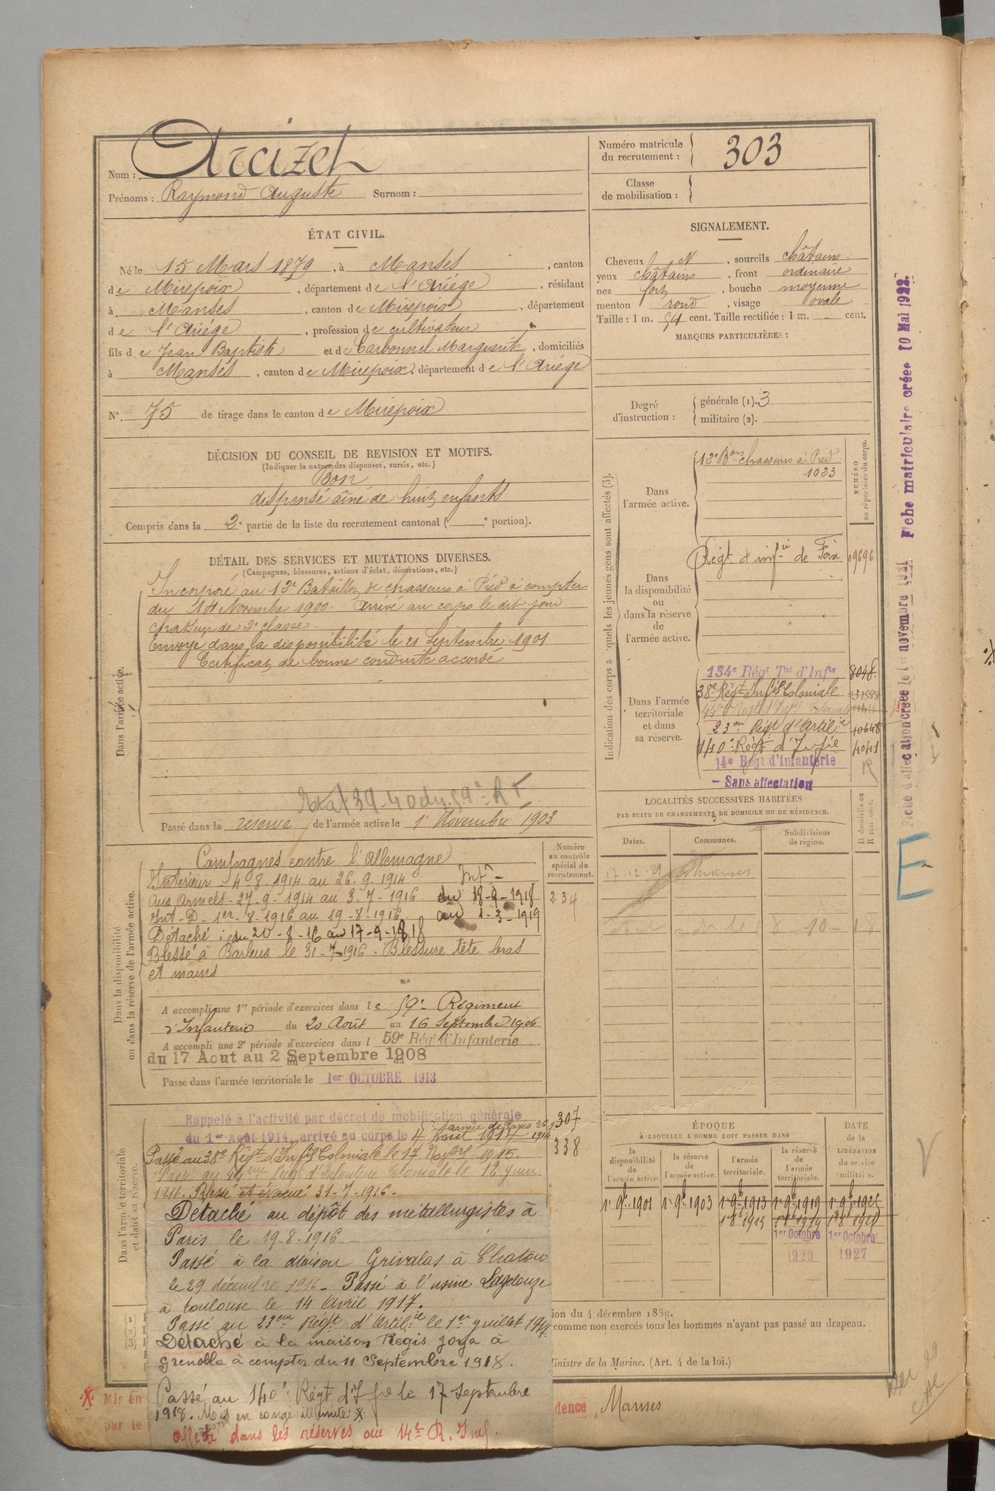 Nom :
Prénoms : Raymond Auguste Surnom :
ÉTAT CIVIL.
Né le 15 Mars 1879, à Manses, canton
de Mirepoix, département de l'Ariège, résidant
à Manses, canton de Mirepoix, département
de l'Ariège, profession de cultivateur
fils de Jean Baptiste et de Carbonnel Marguerite, domiciliés
à Manses, canton de Mirepoix, département de l'Ariège
N°. 75 de tirage dans le canton de Mirepoix
DÉCISION DU CONSEIL DE REVISION ET MOTIFS.
(Indiquer la nature des dispenses, sursis, etc.)
Bon
dispensé aîné de huit enfants
Compris dans la 2e partie de la liste du recrutement cantonal ( e portion).
DÉTAIL DES SERVICES ET MUTATIONS DIVERSES.
(Campagnes, blessures, actions d'éclat, décorations, etc.)
Dans l'armée active.
Incorporé au 12e Bataillon de chasseurs à Pied à compter
du Novembre 1900. Arrivé au corps le dit jour
chasseur de 2e classe.
Envoyé dans la disponibilité le 21 Septembre 1901
Certificat de bonne conduite accordé
Passé dans la réserve de l'armée active le 1er Novembre 1903
Dans la disponibilité
ou dans la réserve de l'armée active.
Numéro
au contrôle
spécial du
recrutement.
234
Campagnes contre l'Allemagne
Intérieur 4-8-1914 au 26-9-1914
Aux Armées 27-9-1914 au 3-7-1916 du 18-9-1918
Int. D. 1er-8-1916 au 19-8-1916 au 1-3-1919
Détaché : du 20-8-16 au 17-9-1918
Blessé à Barleux le 31-7-1916. Blessure tête bras
et mains
A accompli une 1re période d'exercices dans le 59e Régiment
d'Infanterie du 20 Août au 16 Septembre 1906
A accompli une 2e période d'exercices dans l 59e Rég. d'Infanterie
du 17 Aout au 2 Septembre 1908
Passé dans l'armée territoriale le 1er OCTOBRE 1913
Dans l'armée territoriale
et dans sa réserve.
Rappelé à l'activité par décret de mobilisation générale
du 1er Août 1914, arrivé au corps le 4 Août 1914
307
338
Passé au 38e Régt d'Inf. Coloniale le 1915.
1916. Blessé et évacué 31-7-1916.
Détaché au dépôt des métallurgistes à
Paris le 19-8-1916.
Passé à la maison Grivolas à Chatou
le 29 décembre 1916. Passé à l'usine
à Toulouse le 14 Avril 1917.
Passé au 23ème Régt d'Artil.ie le 1er Juillet 1917
Détaché à la maison Régis Joya à
Grenoble à compter du 11 Septembre 1918.
Passé au 140e Régt d'Infie le 17 Septembre
1918. Mis en congé illimité
Affecté dans les réserves au 14e R. Inf.
Mis en
par le
Numéro matricule
du recrutement : 303
Classe
de mobilisation :
SIGNALEMENT.
Cheveux N, sourcils châtains
yeux châtains, front ordinaire
nez fort, bouche moyenne
menton rond, visage ovale
Taille : 1 m. 54 cent. Taille rectifiée : 1 m. cent.
MARQUES PARTICULIÈRES :
Degré
d'instruction :
générale (1). 3
militaire (2).
Indication des corps auxquels les jeunes gens sont affectés (3).
NUMÉRO
au répertoire du corps.
Dans
l'armée active.
12e Bon chasseurs à Pied
1033
Dans
la disponibilité
ou
dans la réserve
de
l'armée active.
Régt d'infie de Foix 09696
Dans l'armée
territoriale
et dans
sa réserve.
134e Régt Tal d'Infie 8048
38e Régt d'Inf. Coloniale
23me Régt d'Artilie
140e Régt d'Infie
14e Régt d'Infanterie
Sans affectation
LOCALITÉS SUCCESSIVES HABITÉES
PAR SUITE DE CHANGEMENTS DE DOMICILE OU DE RÉSIDENCE.
Dates.
Communes.
Subdivisions
de région.
Manses
ÉPOQUE
À LAQUELLE L'HOMME DOIT PASSER DANS
DATE
de la
LIBÉRATION
du service
militaire.
la
disponibilité
de
l'armée active.
la
réserve
de
l'armée active.
l'armée
territoriale.
la réserve
de
l'armée
territoriale.
1er 9bre 1901 1er 9bre 1903 1er 9bre 1913 1er 9bre 1919
1er Octobre 1920
1er Octobre 1927
ion du 4 décembre 1889.
comme non exercés tous les hommes n'ayant pas passé au drapeau.
Ministre de la Marine. (Art. 4 de la loi.)
dence, Manses
Fiche d'allocation créée le 1er novembre 1921 Fiche matriculaire créée 10 Mai 1922.
E